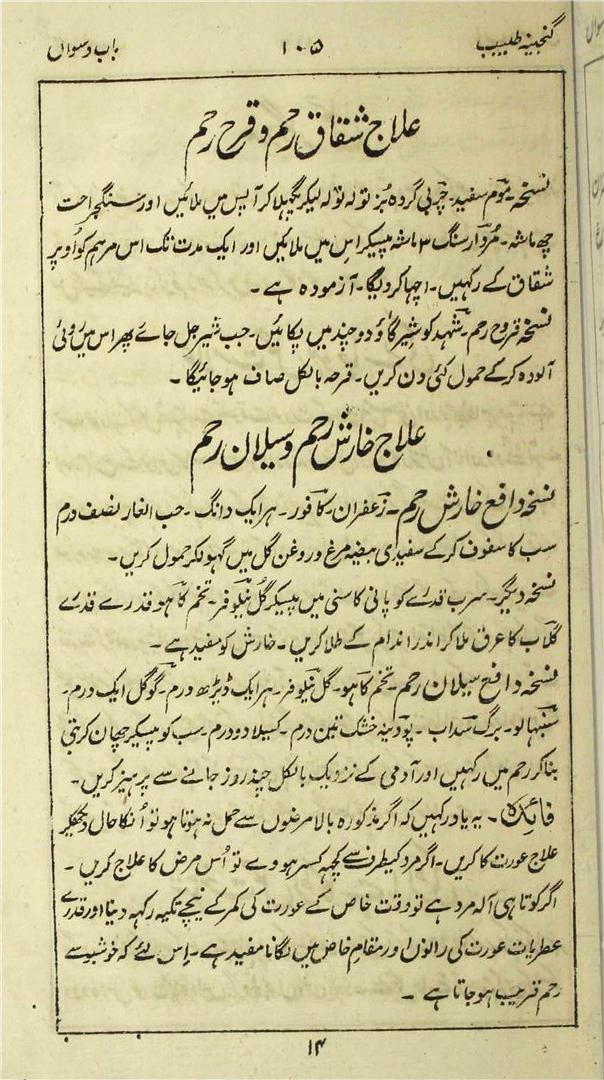 گنجینۂ طبیب
۱۰۵
باب دسواں
علاج شقاق رحم و قرح رحم
نسخہ۔ موم سفید۔ چربی گردہ بز تولہ تولہ لیکر پگہلا کر آپس میں ملائیں اور سنگجراحت
چھ ماشہ۔ مردار سنگ ۳ ماشہ پیسکر اس میں ملائیں اور ایک مدت تک اس مرہم کو اوپر
شقاق کے رکہیں۔ اچہا کردیگا۔ آزمودہ ہے۔
نسخہ قروح رحم۔ شہد کو شیر گاؤ دو چند میں پکائیں۔ جب شیر جل جائے پھر اس میں روئی
آلودہ کر کے حمول کئی دن کریں۔ قرحہ بالکل صاف ہو جائیگا۔
علاج خارش رحم و سیلان رحم
نسخہ دافع خارش رحم۔ زعفران۔ کافور۔ ہر ایک دانگ۔ حب الغار نصف درم
سب کا سفوف کر کے سفیدی بیضہ مرغ و روغن گل میں گہولکر حمول کریں۔
نسخہ دیگر۔ سرب قدرے کو پانی کاسنی میں پیسکر گل نیلوفر۔ تخم کاہو قدرے قدرے
گلاب کا عرق ملا کر اندر اندام کے طلا کریں۔ خارش کو مفید ہے۔
نسخہ دافع سیلان رحم۔ تخم کاہو۔ گل نیلوفر۔ ہر ایک ڈیڑھ درم۔ گوگل ایک درم۔
سنبہالو۔ برگ سداب۔ پودینہ خشک تین درم۔ کسیلا دو درم۔ سب کو پیسکر چھان کر بتی
بنا کر رحم میں رکہیں اور آدمی کے نزدیک بالکل چند روز جانے سے پرہیز کریں۔
فائدہ۔ یہ یاد رکہیں کہ اگر مذکورہ بالا مرضوں سے حمل نہ ہوتا ہو تو اُنکا حال دیکھکر
علاج عورت کا کریں۔ اگر مرد کیطرف سے کچہ کسر ہووے تو اُس مرض کا علاج کریں۔
اگر کوتاہی آلہ مرد ہے تو وقت خاص کے عورت کی کمر کے نیچے تکیہ رکہہ دینا اور قدرے
عطریات عورت کی رانوں اور مقام خاص میں لگانا مفید ہے۔ اِس لئے کہ خوشبو سے
رحم قریب ہو جاتا ہے۔
۱۴